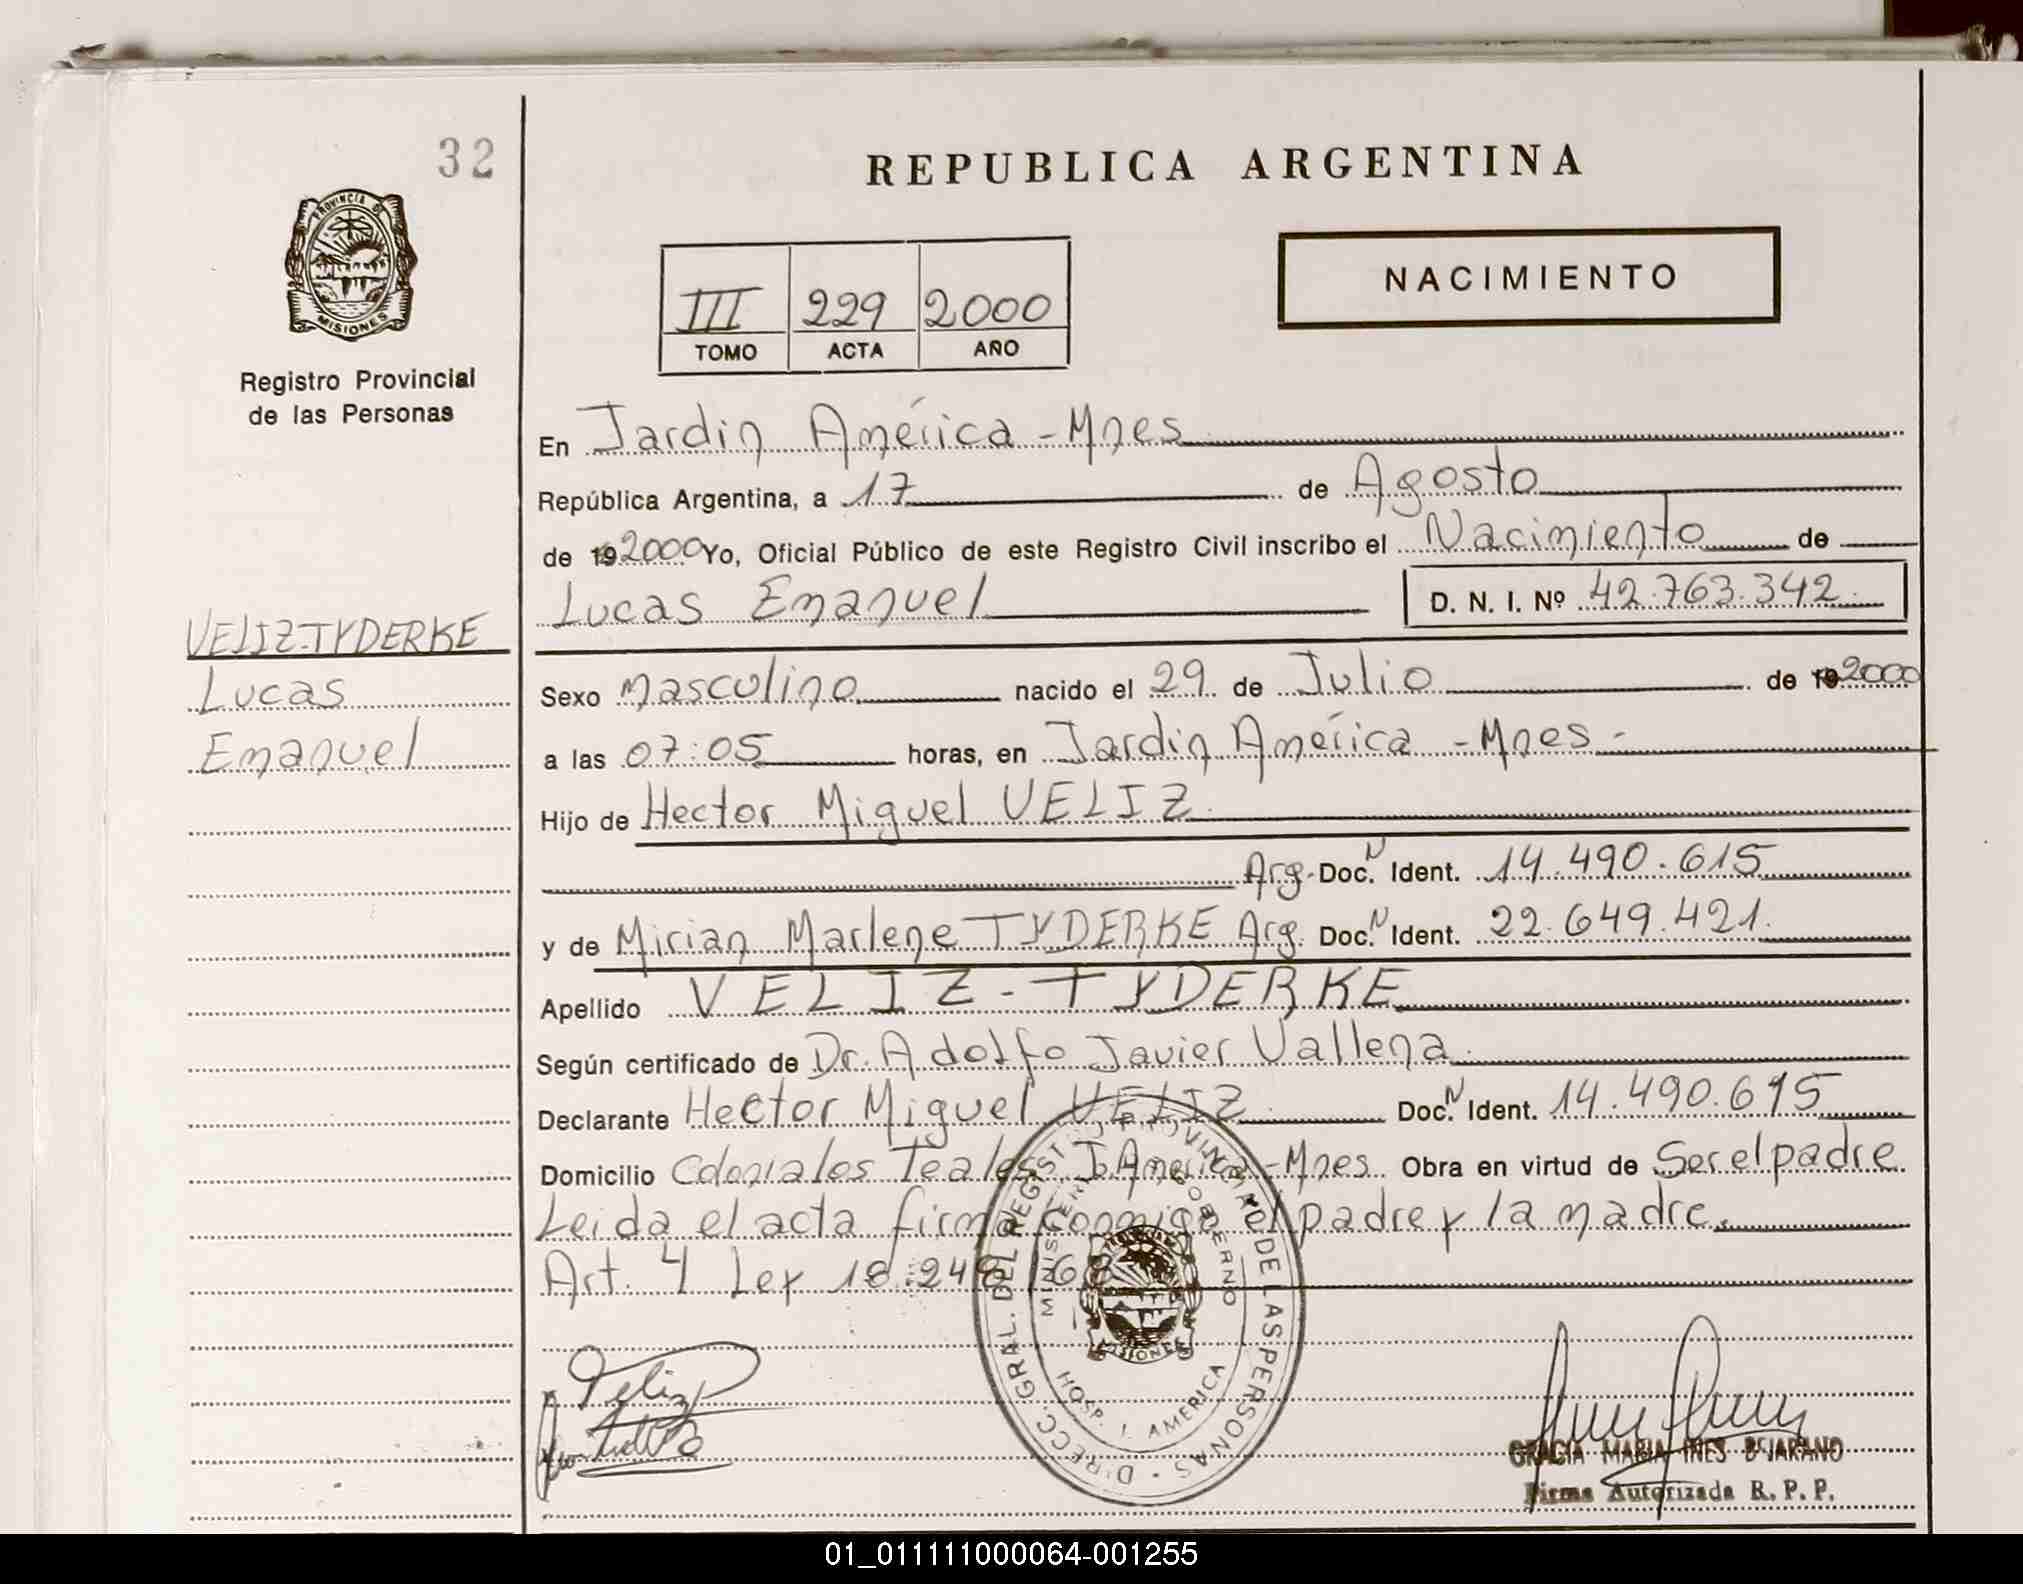 32
REPUBLICA ARGENTINA
PROVINCIA DE
MISIONES
NACIMIENTO
III 229 2000
TOMO ACTA AÑO
Registro Provincial
de las Personas
En Jardin América - Mnes
República Argentina, a 17 de Agosto
de 19 2000 Yo, Oficial Público de este Registro Civil inscribo el Nacimiento de
Lucas Emanuel D. N. I. Nº 42.763.342
VELIZ-TYDERKE
Lucas
Emanuel
Sexo masculino nacido el 29 de Julio de 19 2000
a las 07:05 horas, en Jardin América - Mnes -
Hijo de Hector Miguel VELIZ
Arg. Doc. N Ident. 14.490.615
y de Mirian Marlene TYDERKE Arg. Doc. N Ident. 22.649.421.
Apellido VELIZ - TYDERKE
Según certificado de Dr. Adolfo Javier Vallena
Declarante Hector Miguel VELIZ Doc. N Ident. 14.490.615
Domicilio Coloniales Teales J. America - Mnes Obra en virtud de Ser el padre
Leida el acta firma conmigo el padre y la madre.
Art. 4 Ley 18.248/68
DIRECC. GRAL. DEL REGIST. PROVINCIAL DE LAS PERSONAS
MINISTERIO GOBIERNO
MISIONES
HOSP. J. AMERICA
Veliz
GRACIA MARIA INES BEJARANO
Firma Autorizada R. P. P.
01_011111000064-001255